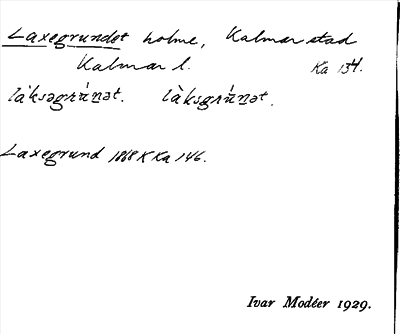 Laxegrundet holme, Kalmar stad
Kalmar l. Ka 134.
làksəgrúnət. làksgrúnət.
Laxegrund 1868 K Ka 146.
Ivar Modéer 1929.